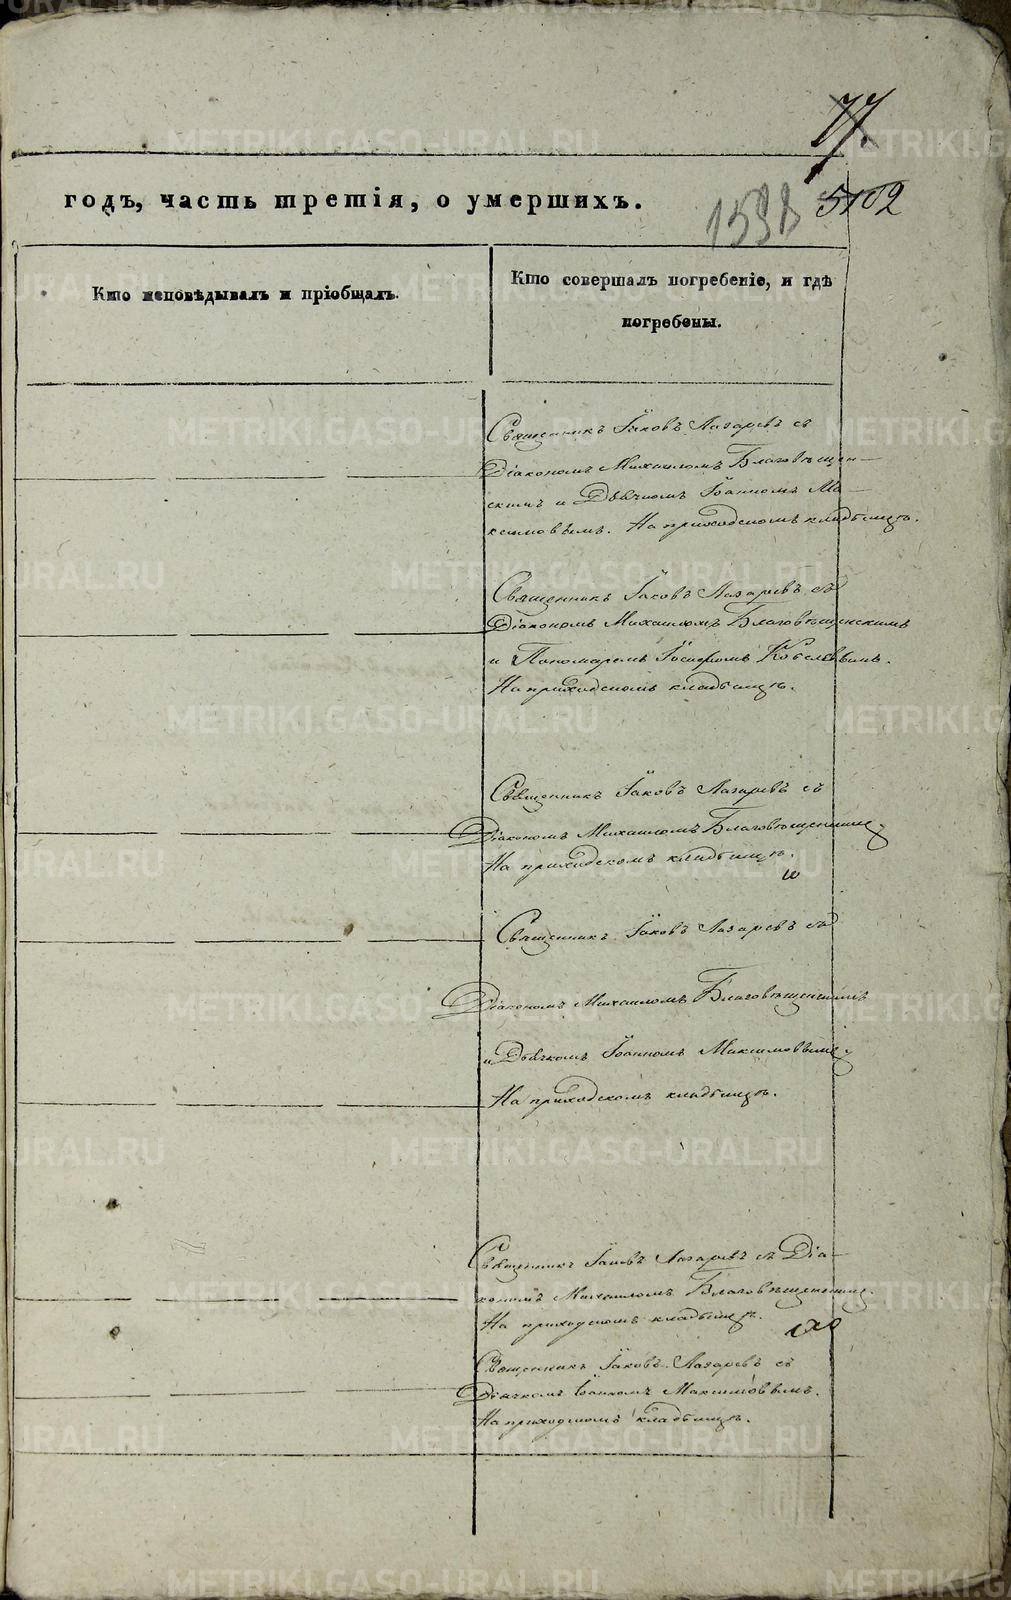 77.
годъ, часть третія, о умершихъ.
5102
Кто исповѣдывалъ и пріобщалъ.
Кто совершалъ погребеніе, и гдѣ
погребены.
Священникъ Іаковъ Лазаревъ съ
Діакономъ Михаиломъ Благовѣщен-
скимъ и Дьячкомъ Іоанномъ Ма-
ксимовымъ. На приходскомъ кладбищѣ.
Священникъ Іаковъ Лазаревъ съ
Діакономъ Михаиломъ Благовѣщенскимъ
и Пономаремъ Іосифомъ
На приходскомъ кладбищѣ.
Священникъ Іаковъ Лазаревъ съ
Діакономъ Михаиломъ Благовѣщенскимъ
На приходскомъ кладбищѣ.
Священникъ Іаковъ Лазаревъ съ
Діакономъ Михаиломъ Благовѣщенскимъ
и Дьячкомъ Іоанномъ Максимовымъ
На приходскомъ кладбищѣ.
Священникъ Іаковъ Лазаревъ съ Діа-
кономъ Михаиломъ Благовѣщенскимъ.
На приходскомъ кладбищѣ.
Священникъ Іаковъ Лазаревъ съ
Дьячкомъ Іоанномъ Максимовымъ.
На приходскомъ кладбищѣ.
METRIKI.GASO-URAL.RU